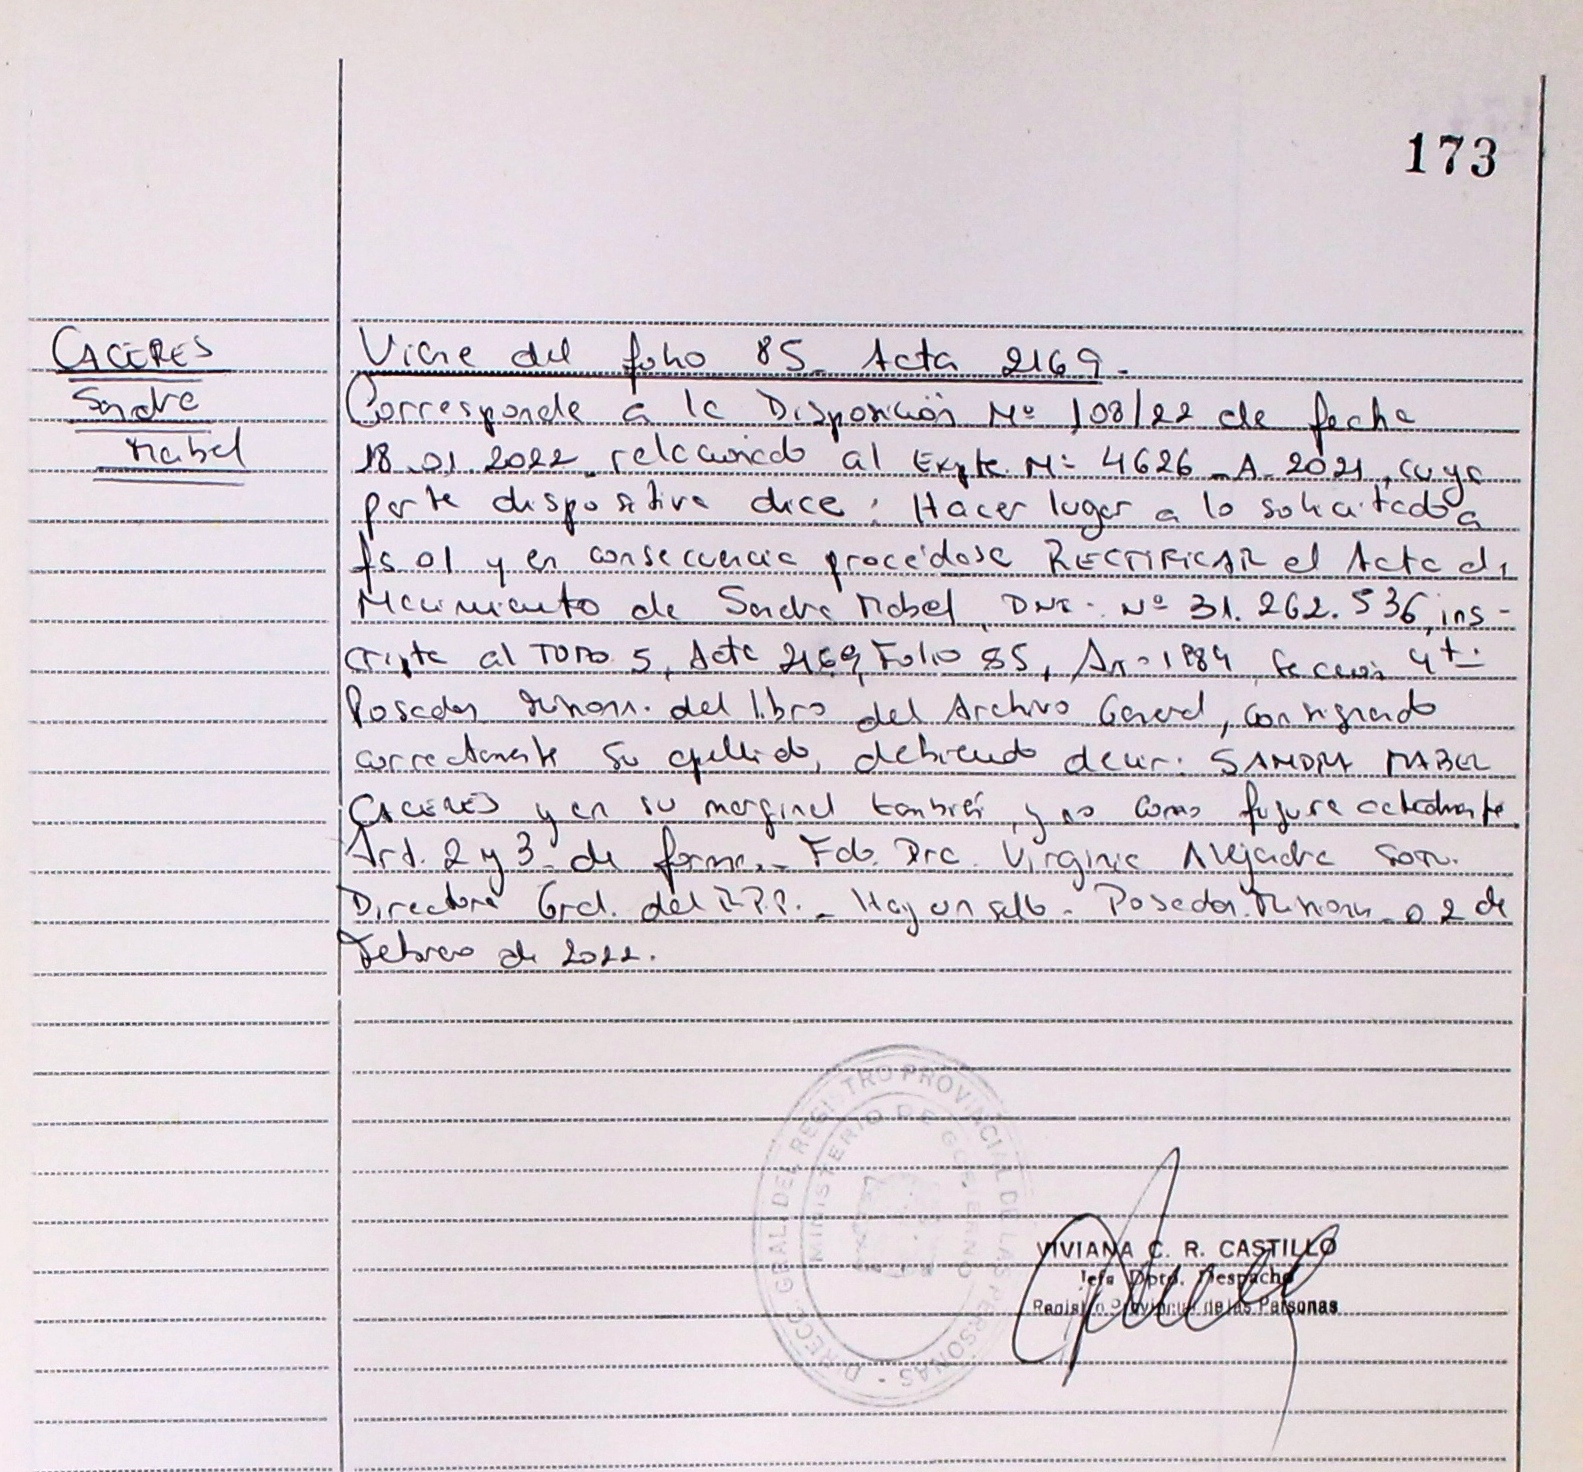 173
CACERES
Sandra
Mabel
Viene del folio 85. Acta 2169.-
Corresponde a la Disposición Nº 108/22 de fecha
18.01.2022 relacionado al Expte. Nº 4626-A-2021, cuya
parte dispositiva dice: Hacer lugar a lo solicitado a
fs 01 y en consecuencia procédase RECTIFICAR el Acta de
Nacimiento de Sandra Mabel, DNI. Nº 31.262.536, ins-
cripta al TOMO 5, Acta 2169, Folio 85, Año 1984, Sección 4ta
Posadas Misiones. del libro del Archivo General, consignando
correctamente su apellido, debiendo decir: SANDRA MABEL
CACERES y en su marginal también, y no como figura actualmente.
Art. 2 y 3 de forma.- Fdo. Dra. Virginia Alejandra
Directora Gral. del R.P.P. - Hay un sello - Posadas. Misiones - 02 de
Febrero de 2022.
DIRECC. GRAL. DEL REGISTRO PROVINCIAL DE LAS PERSONAS -
MINISTERIO DE GOBIERNO
VIVIANA C. R. CASTILLO
Jefa Dpto. Despacho
Registro Provincial de las Personas